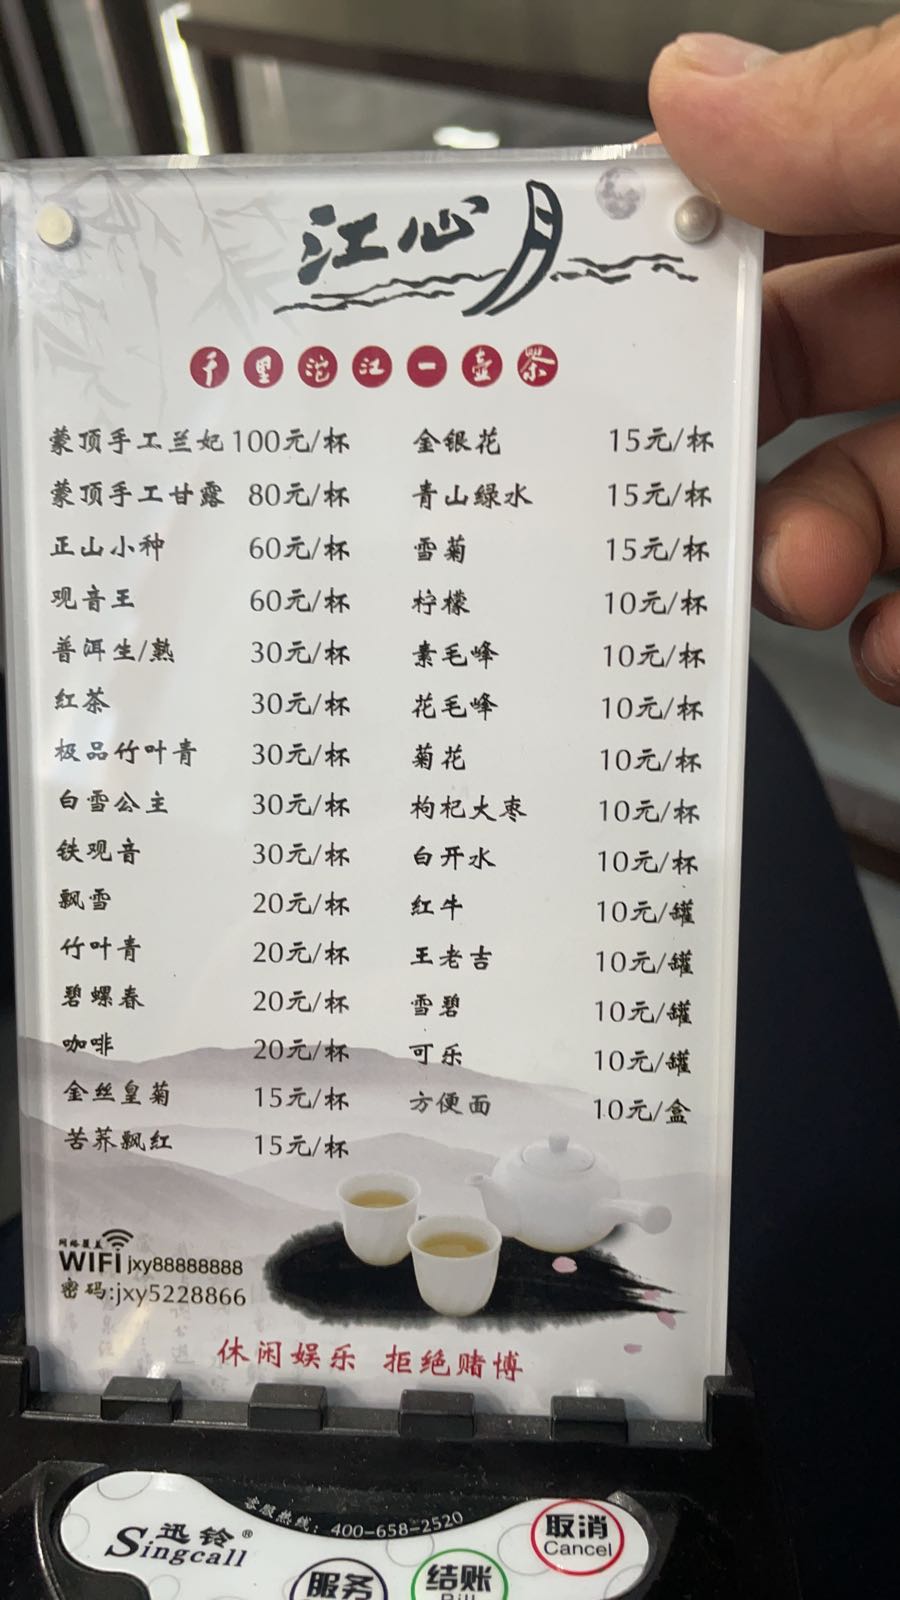 江心月
千里沱江一壶茶
蒙顶手工兰妃 100元/杯 金银花 15元/杯
蒙顶手工甘露 80元/杯 青山绿水 15元/杯
正山小种 60元/杯 雪菊 15元/杯
观音王 60元/杯 柠檬 10元/杯
普洱生/熟 30元/杯 素毛峰 10元/杯
红茶 30元/杯 花毛峰 10元/杯
极品竹叶青 30元/杯 菊花 10元/杯
白雪公主 30元/杯 枸杞大枣 10元/杯
铁观音 30元/杯 白开水 10元/杯
飘雪 20元/杯 红牛 10元/罐
竹叶青 20元/杯 王老吉 10元/罐
碧螺春 20元/杯 雪碧 10元/罐
咖啡 20元/杯 可乐 10元/罐
金丝皇菊 15元/杯 方便面 10元/盒
苦荞飘红 15元/杯
网络覆盖
WIFI jxy88888888
密码:jxy5228866
休闲娱乐 拒绝赌博
客服热线：400-658-2520
迅铃®
Singcall
服务
结账
Bill
取消
Cancel